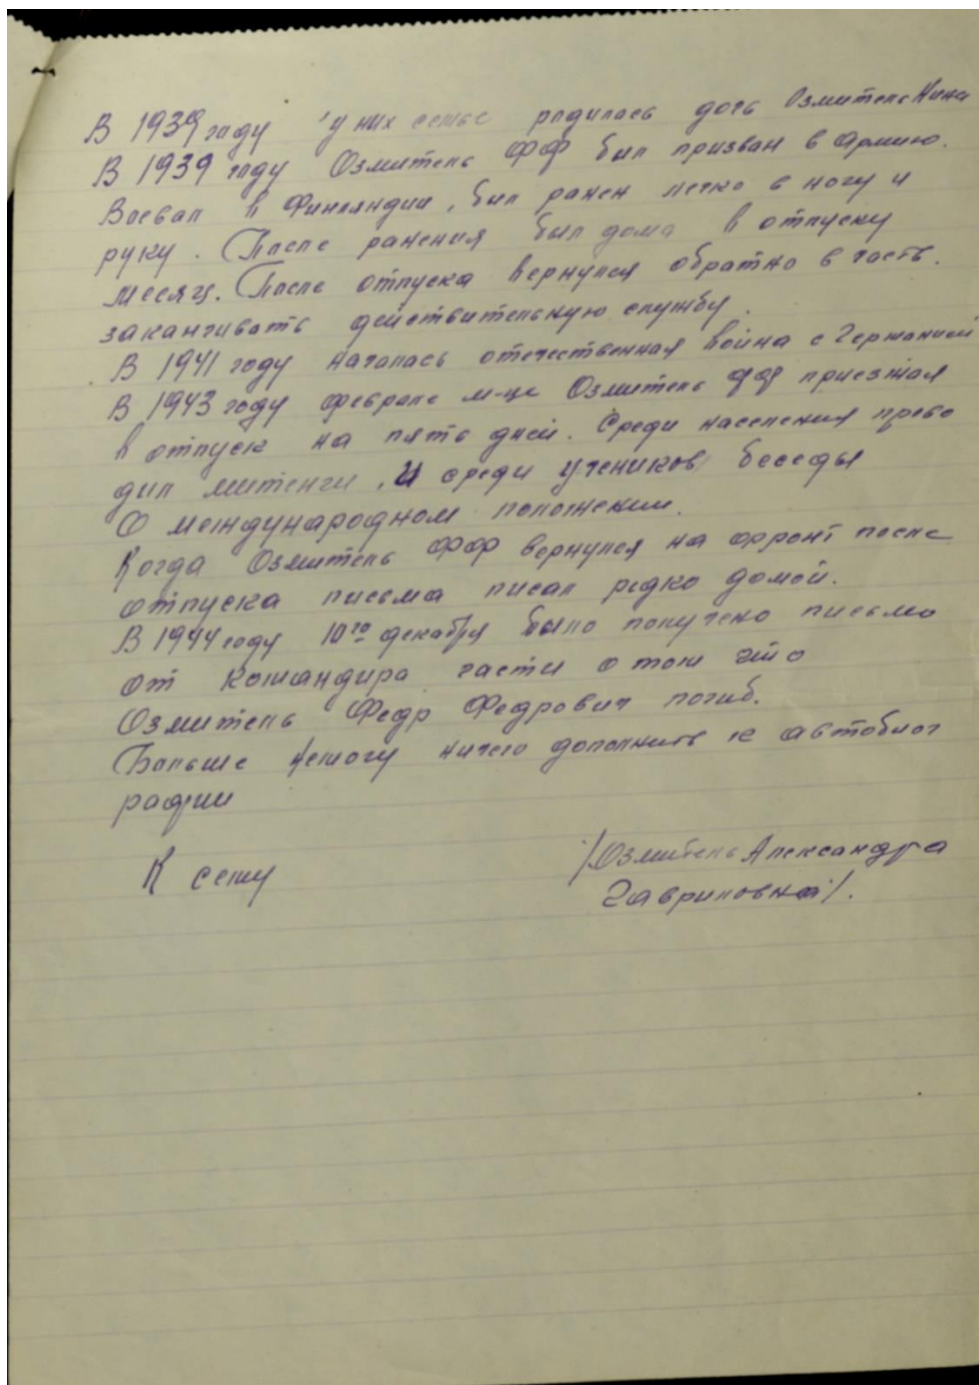 В 1939 году у них семье родилась дочь Озмитель Нина
В 1939 году Озмитель ФФ был призван в Армию.
Воевал в Финляндии, был ранен легко в ногу и
руку. После ранения был дома в отпуску
месяц. После отпуска вернулся обратно в часть.
заканчивать действительную службу.
В 1941 году началась отечественная война с Германией
В 1943 году феврале м-це Озмитель ФФ приезжал
в отпуск на пять дней. Среди населения прово
дил митенги, и среди учеников беседы
О международном положении.
Когда Озмитель ФФ вернулся на фрронт после
отпуска письма писал редко домой.
В 1944 году 10го декабря было получено письмо
от командира части о том что
Озмитель Федр Федрович погиб.
Больше немогу ничего дополнить к автобиог
рафии
К сему /Озмитель Александра
Гавриловна/.